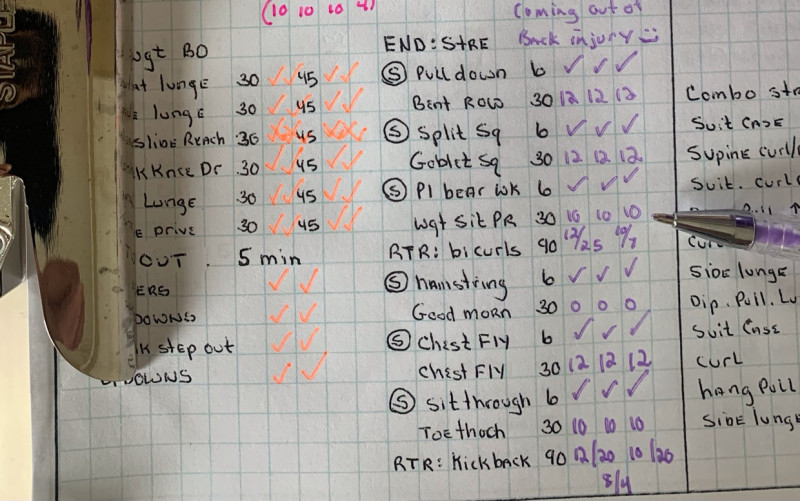 STAPLE
(10 10 10 4)
wgt BO
at lunge 30 ✓✓ 45 ✓✓
lunge 30 ✓✓ 45 ✓✓
Slide Reach 30 45
K Knee Dr 30 ✓✓ 45 ✓✓
Lunge 30 ✓✓ 45 ✓✓
E Drive 30 ✓✓ 45 ✓✓
OUT . 5 min
ERS ✓ ✓
DOWNS ✓ ✓
K step out ✓ ✓
DOWNS ✓ ✓
Coming out of
Back injury
END: STRE
Ⓢ Pull down 6 ✓ ✓ ✓
Bent Row 30 12 12 12
Ⓢ Split Sq 6 ✓ ✓ ✓
Goblet Sq 30 12 12 12
Ⓢ Pl bear wk 6 ✓ ✓ ✓
Wgt Sit PR 30 10 10 10
RTR: bicurls 90 12/25 10/7
Ⓢ hamstring 6 ✓ ✓ ✓
Good morn 30 0 0 0
Ⓢ Chest Fly 6 ✓ ✓ ✓
Chest Fly 30 12 12 12
Ⓢ sit through 6 ✓ ✓ ✓
Toe thoch 30 10 10 10
RTR: Kickback 90 12/20 10/20
8/4
Combo str
Suit Case
Supine curl/
Suit. curl
Side lunge
Dip. Pull. Lu
Suit Case
Curl
hang Pull
Side lunge